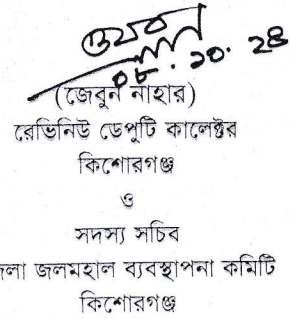 ০৮.১০.২৪
(জেবুন নাহার)
রেভিনিউ ডেপুটি কালেক্টর
কিশোরগঞ্জ
ও
সদস্য সচিব
লা জলমহাল ব্যবস্থাপনা কমিটি
কিশোরগঞ্জ